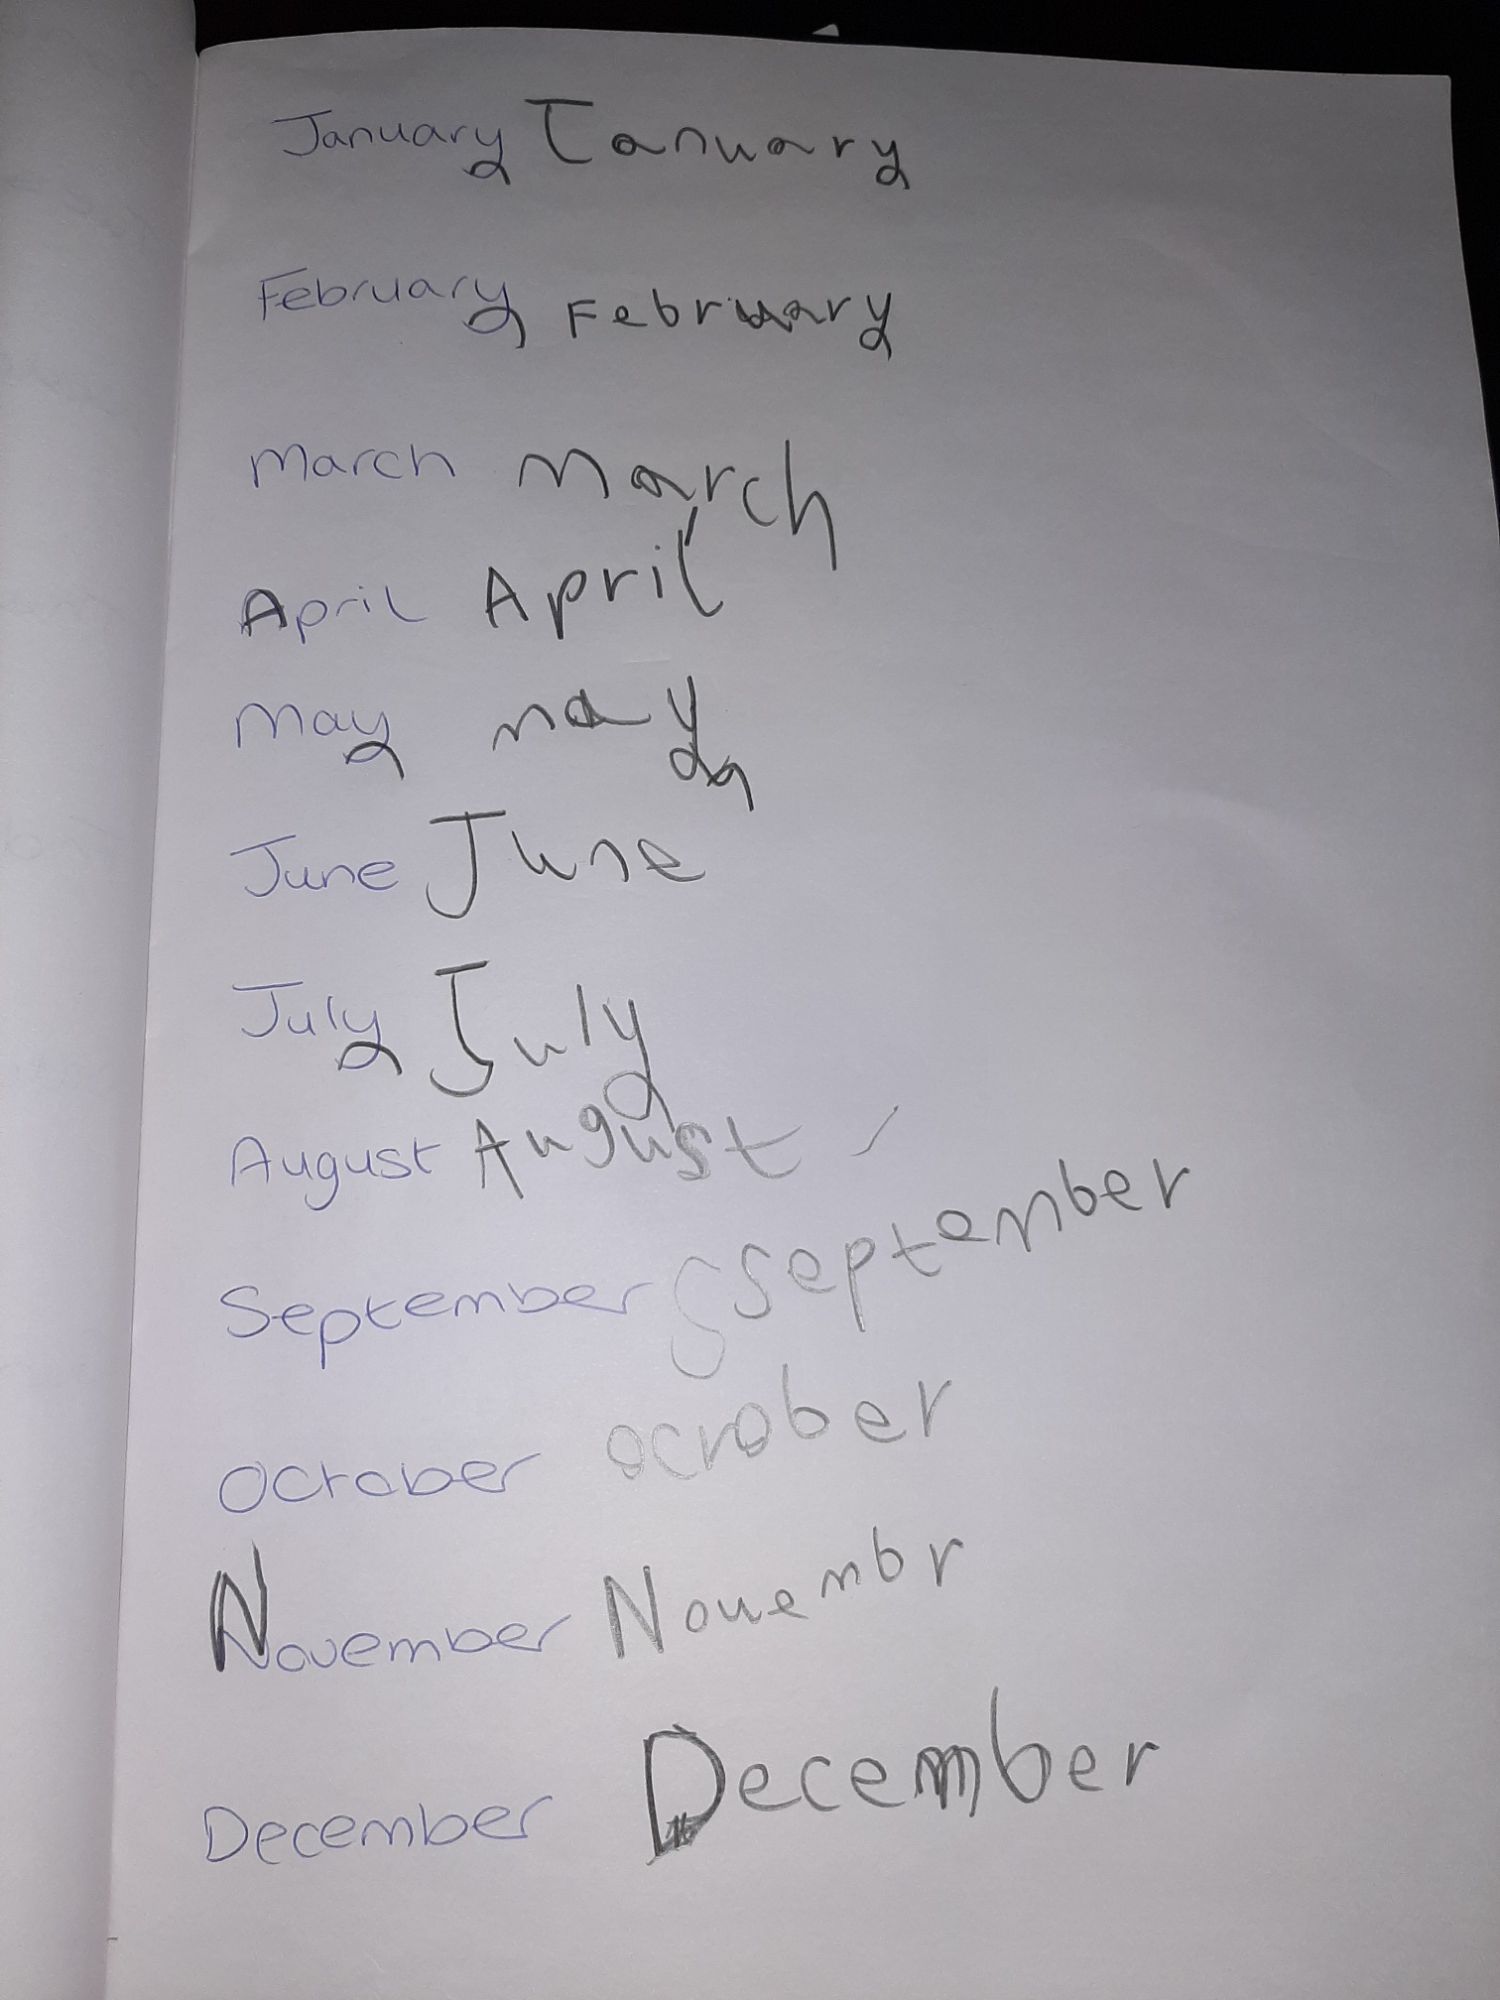 January January
February February
March March
April April
May may
June June
July July
August August
September September
October ocrober
November Novembr
December December